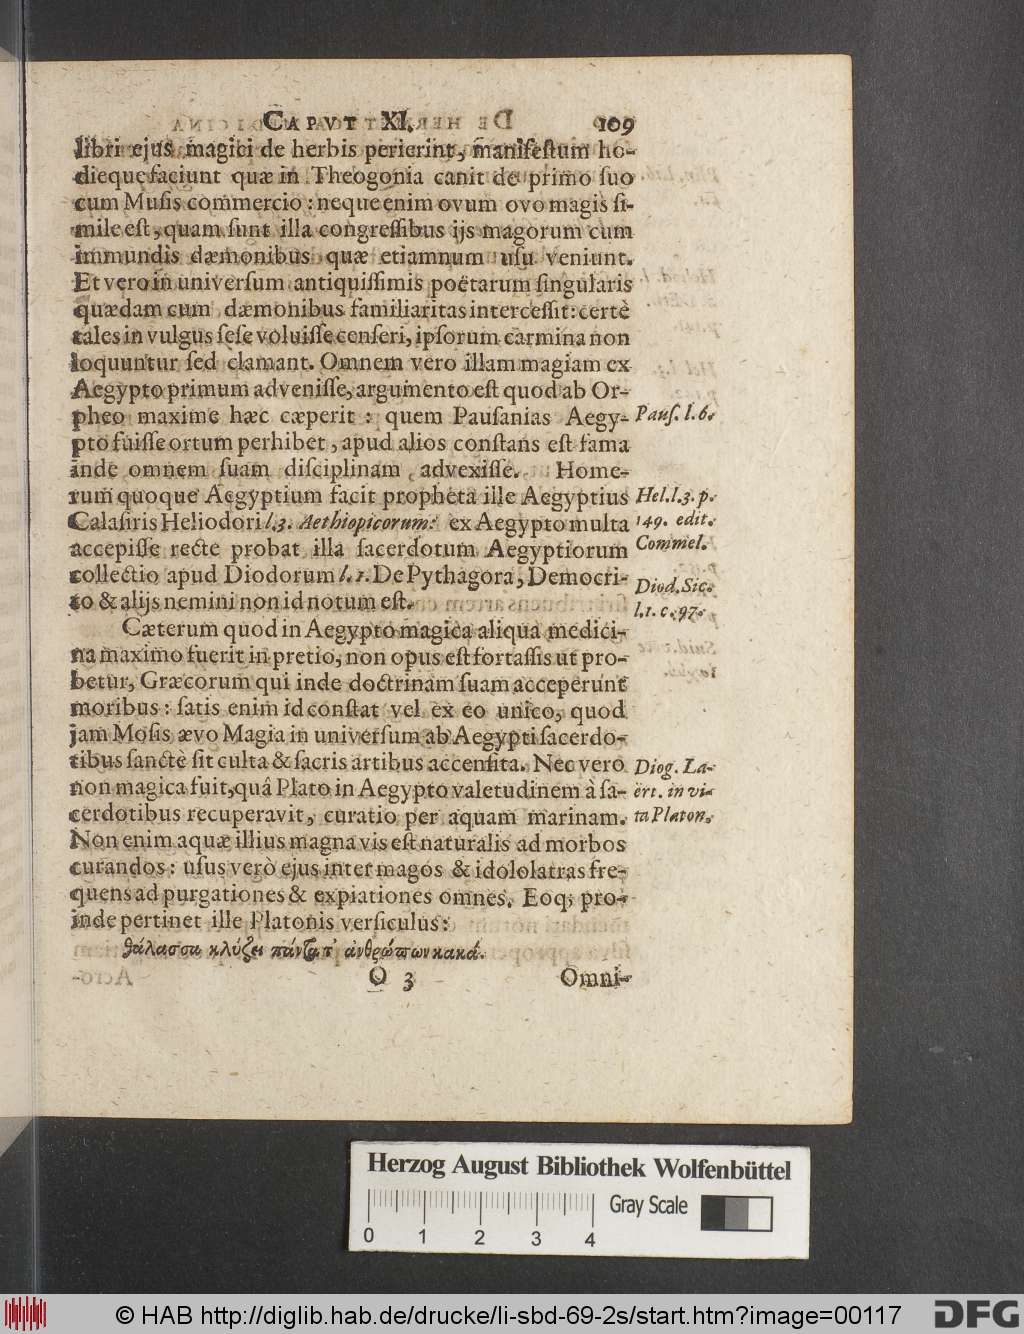 CAPVT XI. 109
libri ejus magici de herbis perierint, manifeſtum ho-
dieque faciunt quæ in Theogonia canit de primo ſuo
cum Muſis commercio : neque enim ovum ovo magis ſi-
mile eſt, quam ſunt illa congreſſibus ijs magorum cum
immundis dæmonibus quæ etiamnum uſu veniunt.
Et vero in univerſum antiquiſſimis poëtarum ſingularis
quædam cum dæmonibus familiaritas interceſſit: certè
tales in vulgus ſeſe voluiſſe cenſeri, ipſorum carmina non
loquuntur ſed clamant. Omnem vero illam magiam ex
Aegypto primum adveniſſe, argumento eſt quod ab Or-
pheo maxime hæc cæperit : quem Pauſanias Aegy-
Pauſ. l. 6.
pto fuiſſe ortum perhibet, apud alios conſtans eſt fama
inde omnem ſuam diſciplinam advexiſſe. Home-
rum quoque Aegyptium facit propheta ille Aegyptius
Hel. l. 3. p.
Calaſiris Heliodori l. 3. Aethiopicorum: ex Aegypto multa
149. edit.
accepiſſe recte probat illa ſacerdotum Aegyptiorum
Commel.
collectio apud Diodorum l. 1. De Pythagora, Democri-
Diod. Sic.
to & alijs nemini non id notum eſt.
l. 1. c. 97.
Cæterum quod in Aegypto magica aliqua medici-
na maximo fuerit in pretio, non opus eſt fortaſſis ut pro-
betur, Græcorum qui inde doctrinam ſuam acceperunt
moribus : ſatis enim id conſtat vel ex eo unico, quod
jam Moſis ævo Magia in univerſum ab Aegypti ſacerdo-
tibus ſanctè ſit culta & ſacris artibus accenſita. Nec vero
Diog. La-
non magica fuit, quâ Plato in Aegypto valetudinem à ſa-
ërt. in vi-
cerdotibus recuperavit, curatio per aquam marinam.
ta Platon.
Non enim aquæ illius magna vis eſt naturalis ad morbos
curandos : uſus verò ejus inter magos & idololatras fre-
quens ad purgationes & expiationes omnes. Eoq; pro-
inde pertinet ille Platonis verſiculus:
θάλασσα κλύζει πάντα τ' ἀνθρώπων κακά.
O 3 Omni-
Herzog August Bibliothek Wolfenbüttel
Gray Scale
0 1 2 3 4
© HAB http://diglib.hab.de/drucke/li-sbd-69-2s/start.htm?image=00117
DFG